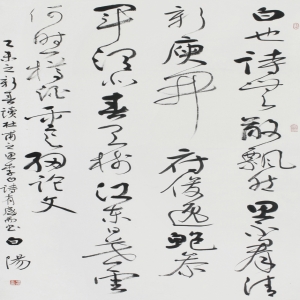 白也詩無敵飄然思不羣清
新庾開府俊逸鮑參
軍渭北春天樹江東日暮雲
何時一樽酒重與細論文
乙未之 讀杜甫之思李白詩有感而書 白